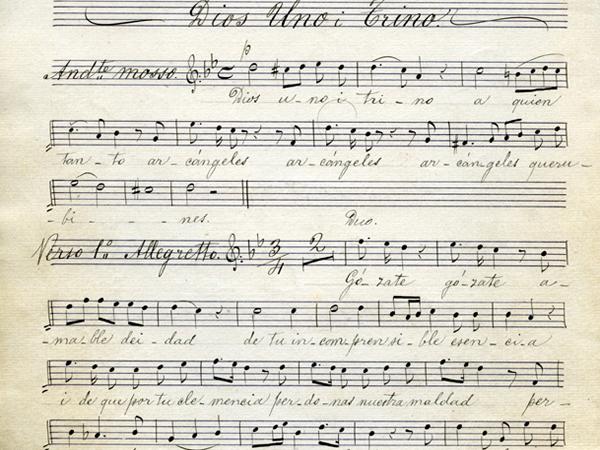 Dios Uno i Trino.
Andte. mosso. p
Dios u-no i tri-no a quien
tan-to ar-cángeles ar-cángeles ar-cángeles queru-
-bi- - - -nes. Duo.
Verso 1º Allegretto. 3/4 2
Gó-zate gó-zate a-
-ma-ble dei-dad de tu in-com-pren si-ble esen-ci-a
i de que por tu cle-mencia per-do-nas nuestra maldad per-